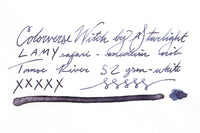 Colorverse Witch by Starlight
LAMY safari - medium nib
Tomoe River 52 gsm - white
XXXXX sssss